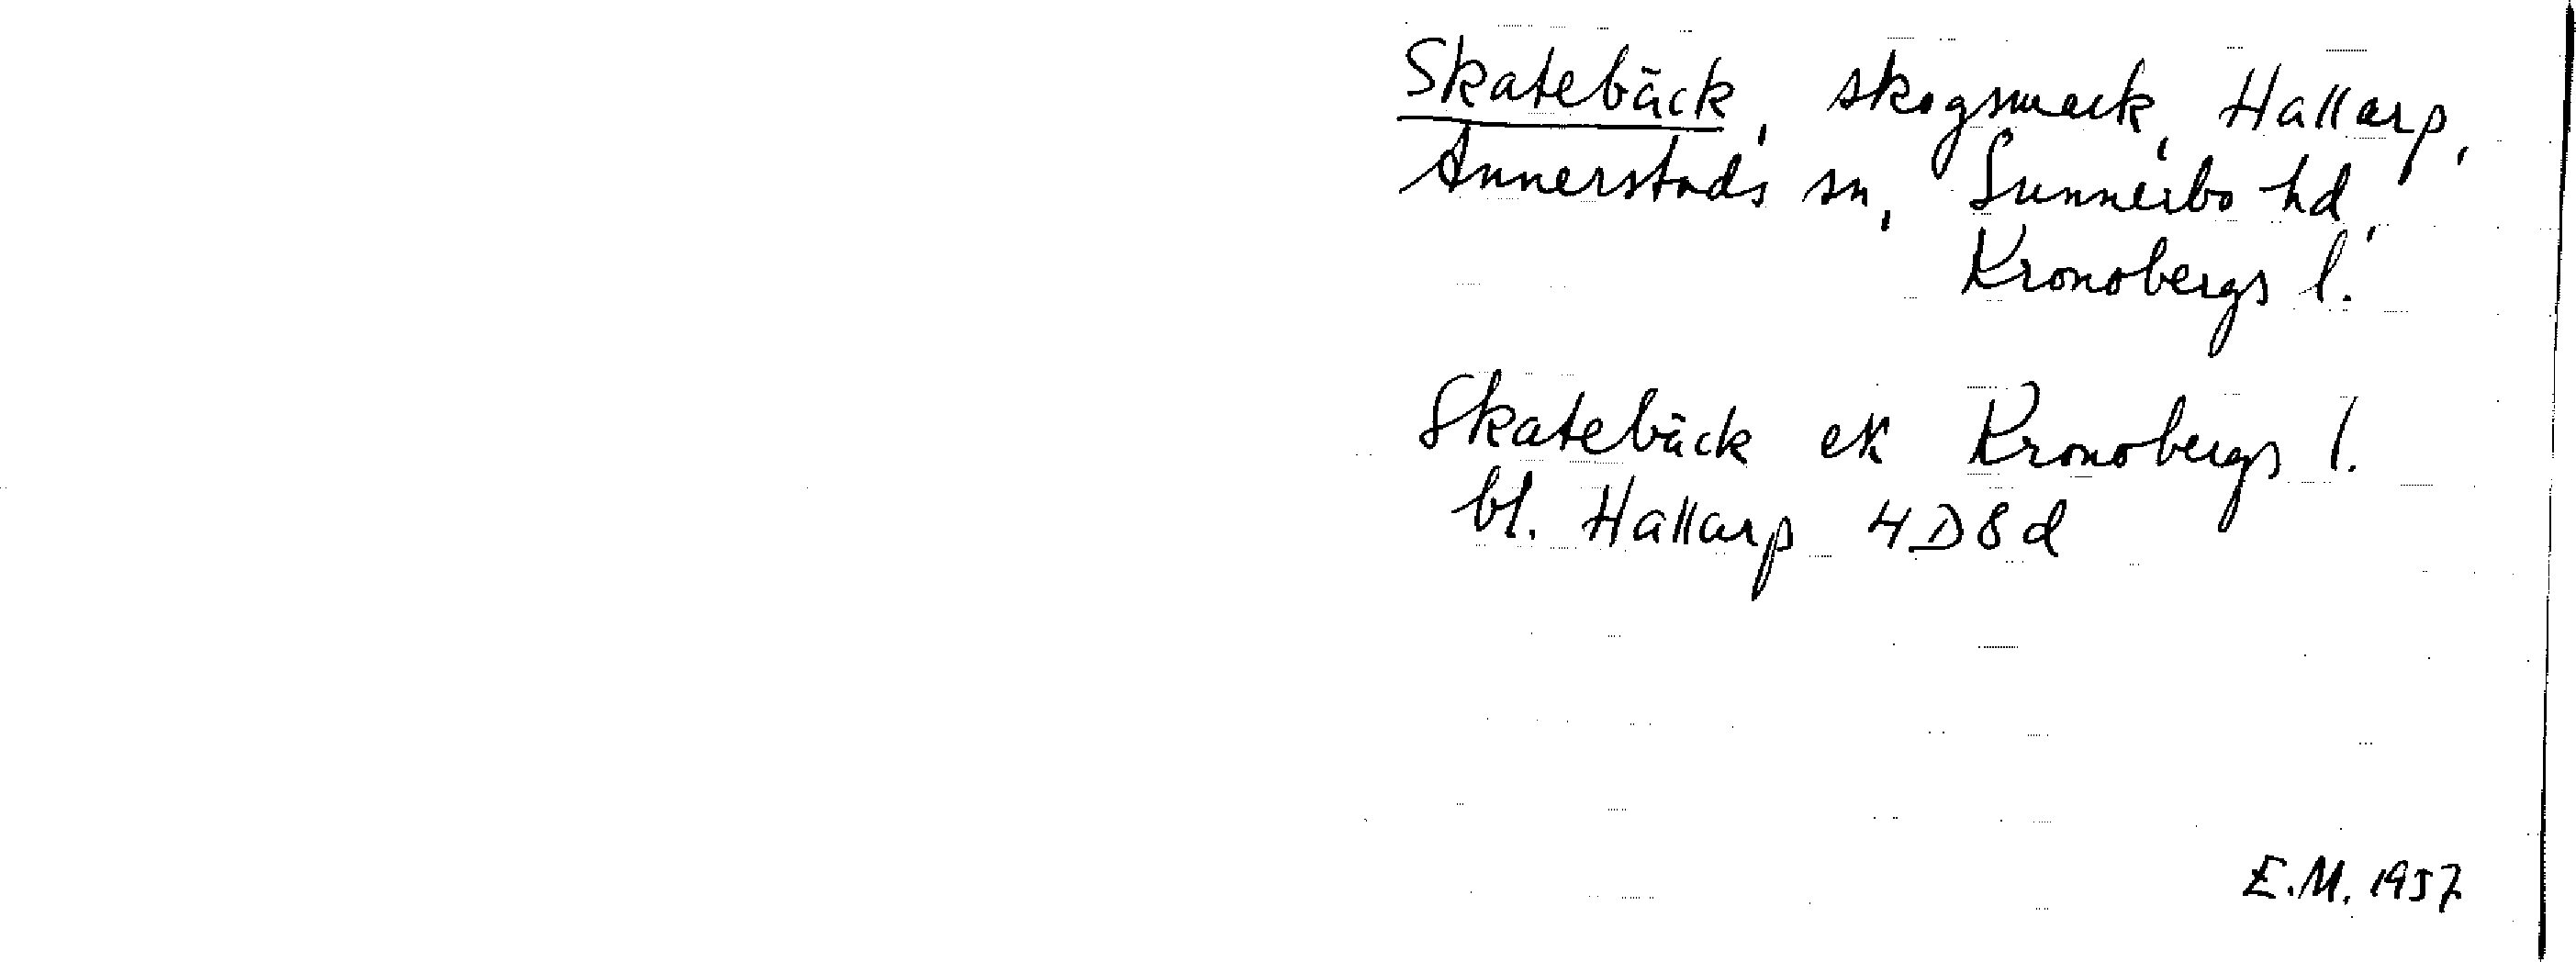 Skatebäck, skogsmark, Hallarp,
Annerstads sn, Sunnerbo hd,
Kronobergs l.
Skatebäck ek Kronobergs l.
bl. Hallarp 4D8d
E.M. 1957